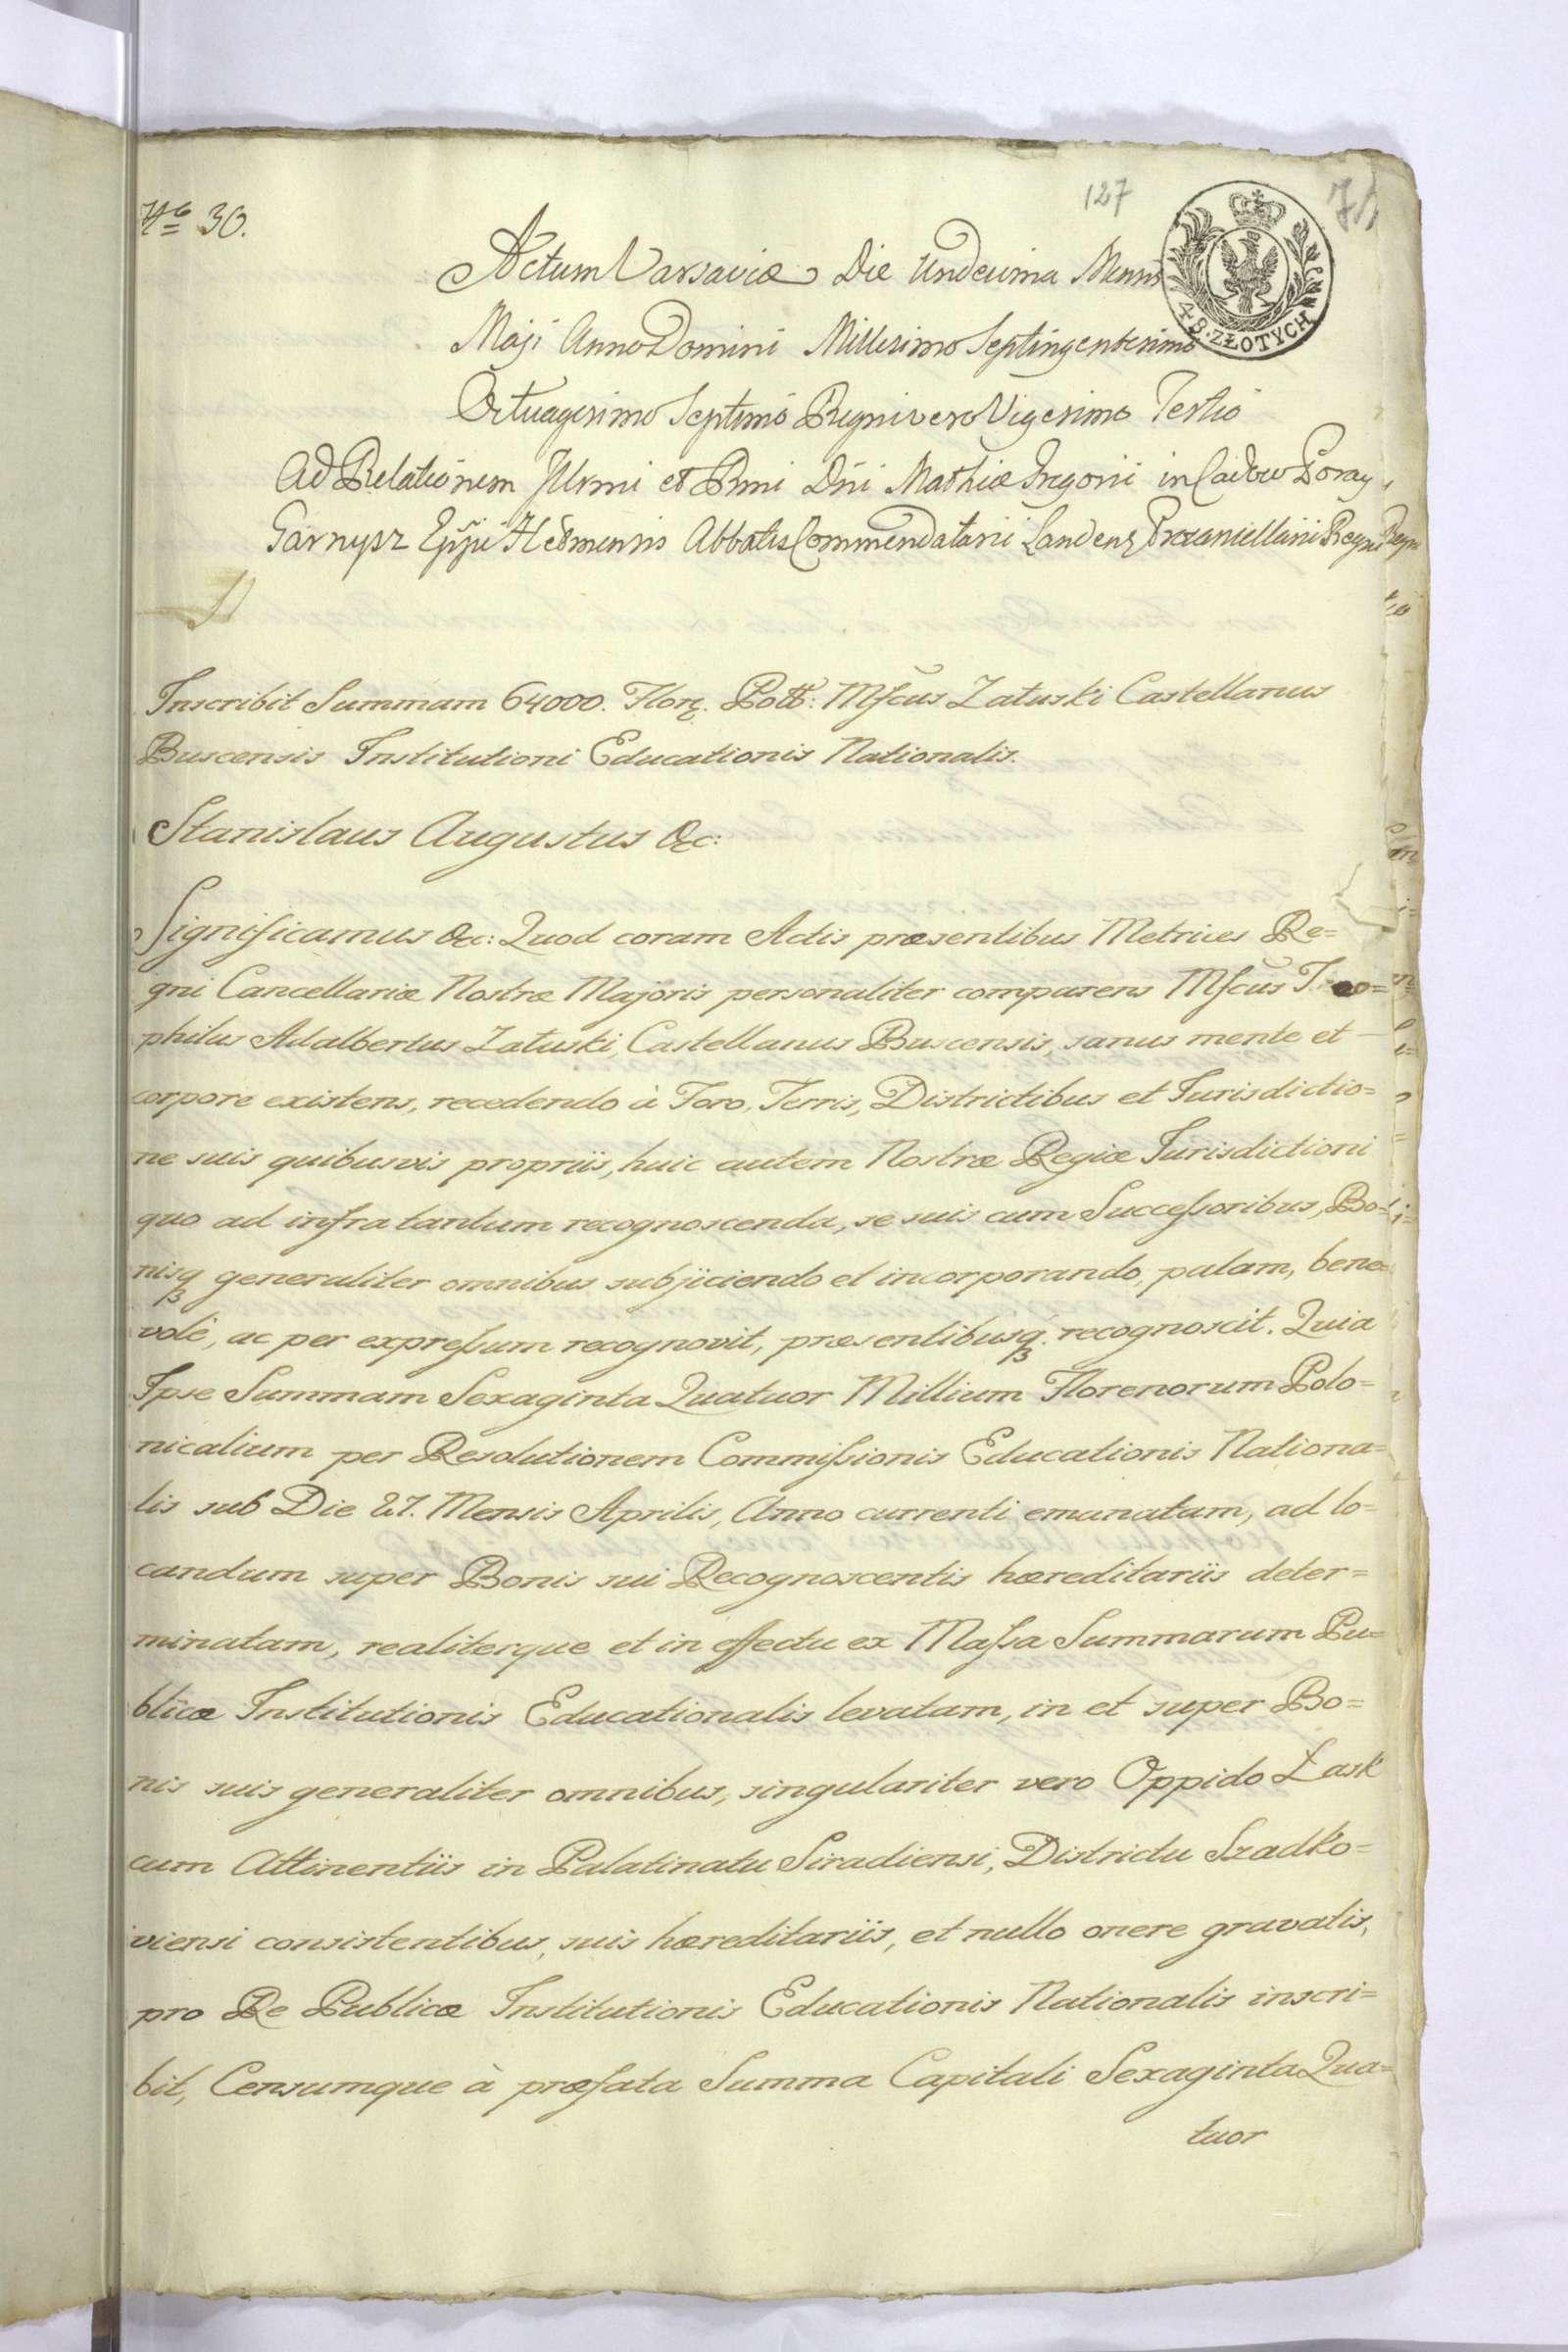 Nº 30.
127
71
48. ZŁOTYCH
Actum Varsaviæ Die Undecima Mensis
Maji Anno Domini Millesimo Septingentesimo
Octuagesimo Septimo Regni vero Vigesimo Tertio
Ad Relationem Illrmi et Rmi Dni Mathiæ Gregorii in Poray
Garnysz Eppi Helmensis Abbatis Commendatarii Landens Procancellarii Regni
Inscribit Summam 64000. Flor. Poll: Mfcus Załuski Castellanus
Buscensis Institutioni Educationis Nationalis.
Stanislaus Augustus &c:
Significamus &c: Quod coram Actis præsentibus Metrices Re=
gni Cancellariæ Nostræ Majoris personaliter comparens Mfcus Theo=
philus Adalbertus Załuski, Castellanus Buscensis, sanus mente et
corpore existens, recedendo à Foro, Terris, Districtibus et Jurisdictio=
ne suis quibusvis propriis, huic autem Nostræ Regiæ Jurisdictioni
quo ad infra tantum recognoscenda, se suis cum Successoribus, Bo=
nisq generaliter omnibus subjiciendo et incorporando, palam, bene=
volè, ac per expressum recognovit, præsentibusq. recognoscit. Quia
Ipse Summam Sexaginta Quatuor Millium Florenorum Polo=
nicalium per Resolutionem Commissionis Educationis Nationa=
lis sub Die 27. Mensis Aprilis, Anno currenti emanatam, ad lo=
candum super Bonis sui Recognoscentis hæreditariis deter=
minatam, realiterque et in effectu ex Massa Summarum Pu=
blicæ Institutionis Educationalis levatam, in et super Bo=
nis suis generaliter omnibus, singulariter vero Oppido Łask
cum Attinentiis in Palatinatu Siradiensi, Districtu Szadko=
viensi consistentibus, suis hæreditariis, et nullo onere gravatis,
pro Re Publicæ Institutionis Educationis Nationalis inscri=
bit, Censumque à præfata Summa Capitali Sexaginta Qua=
tuor